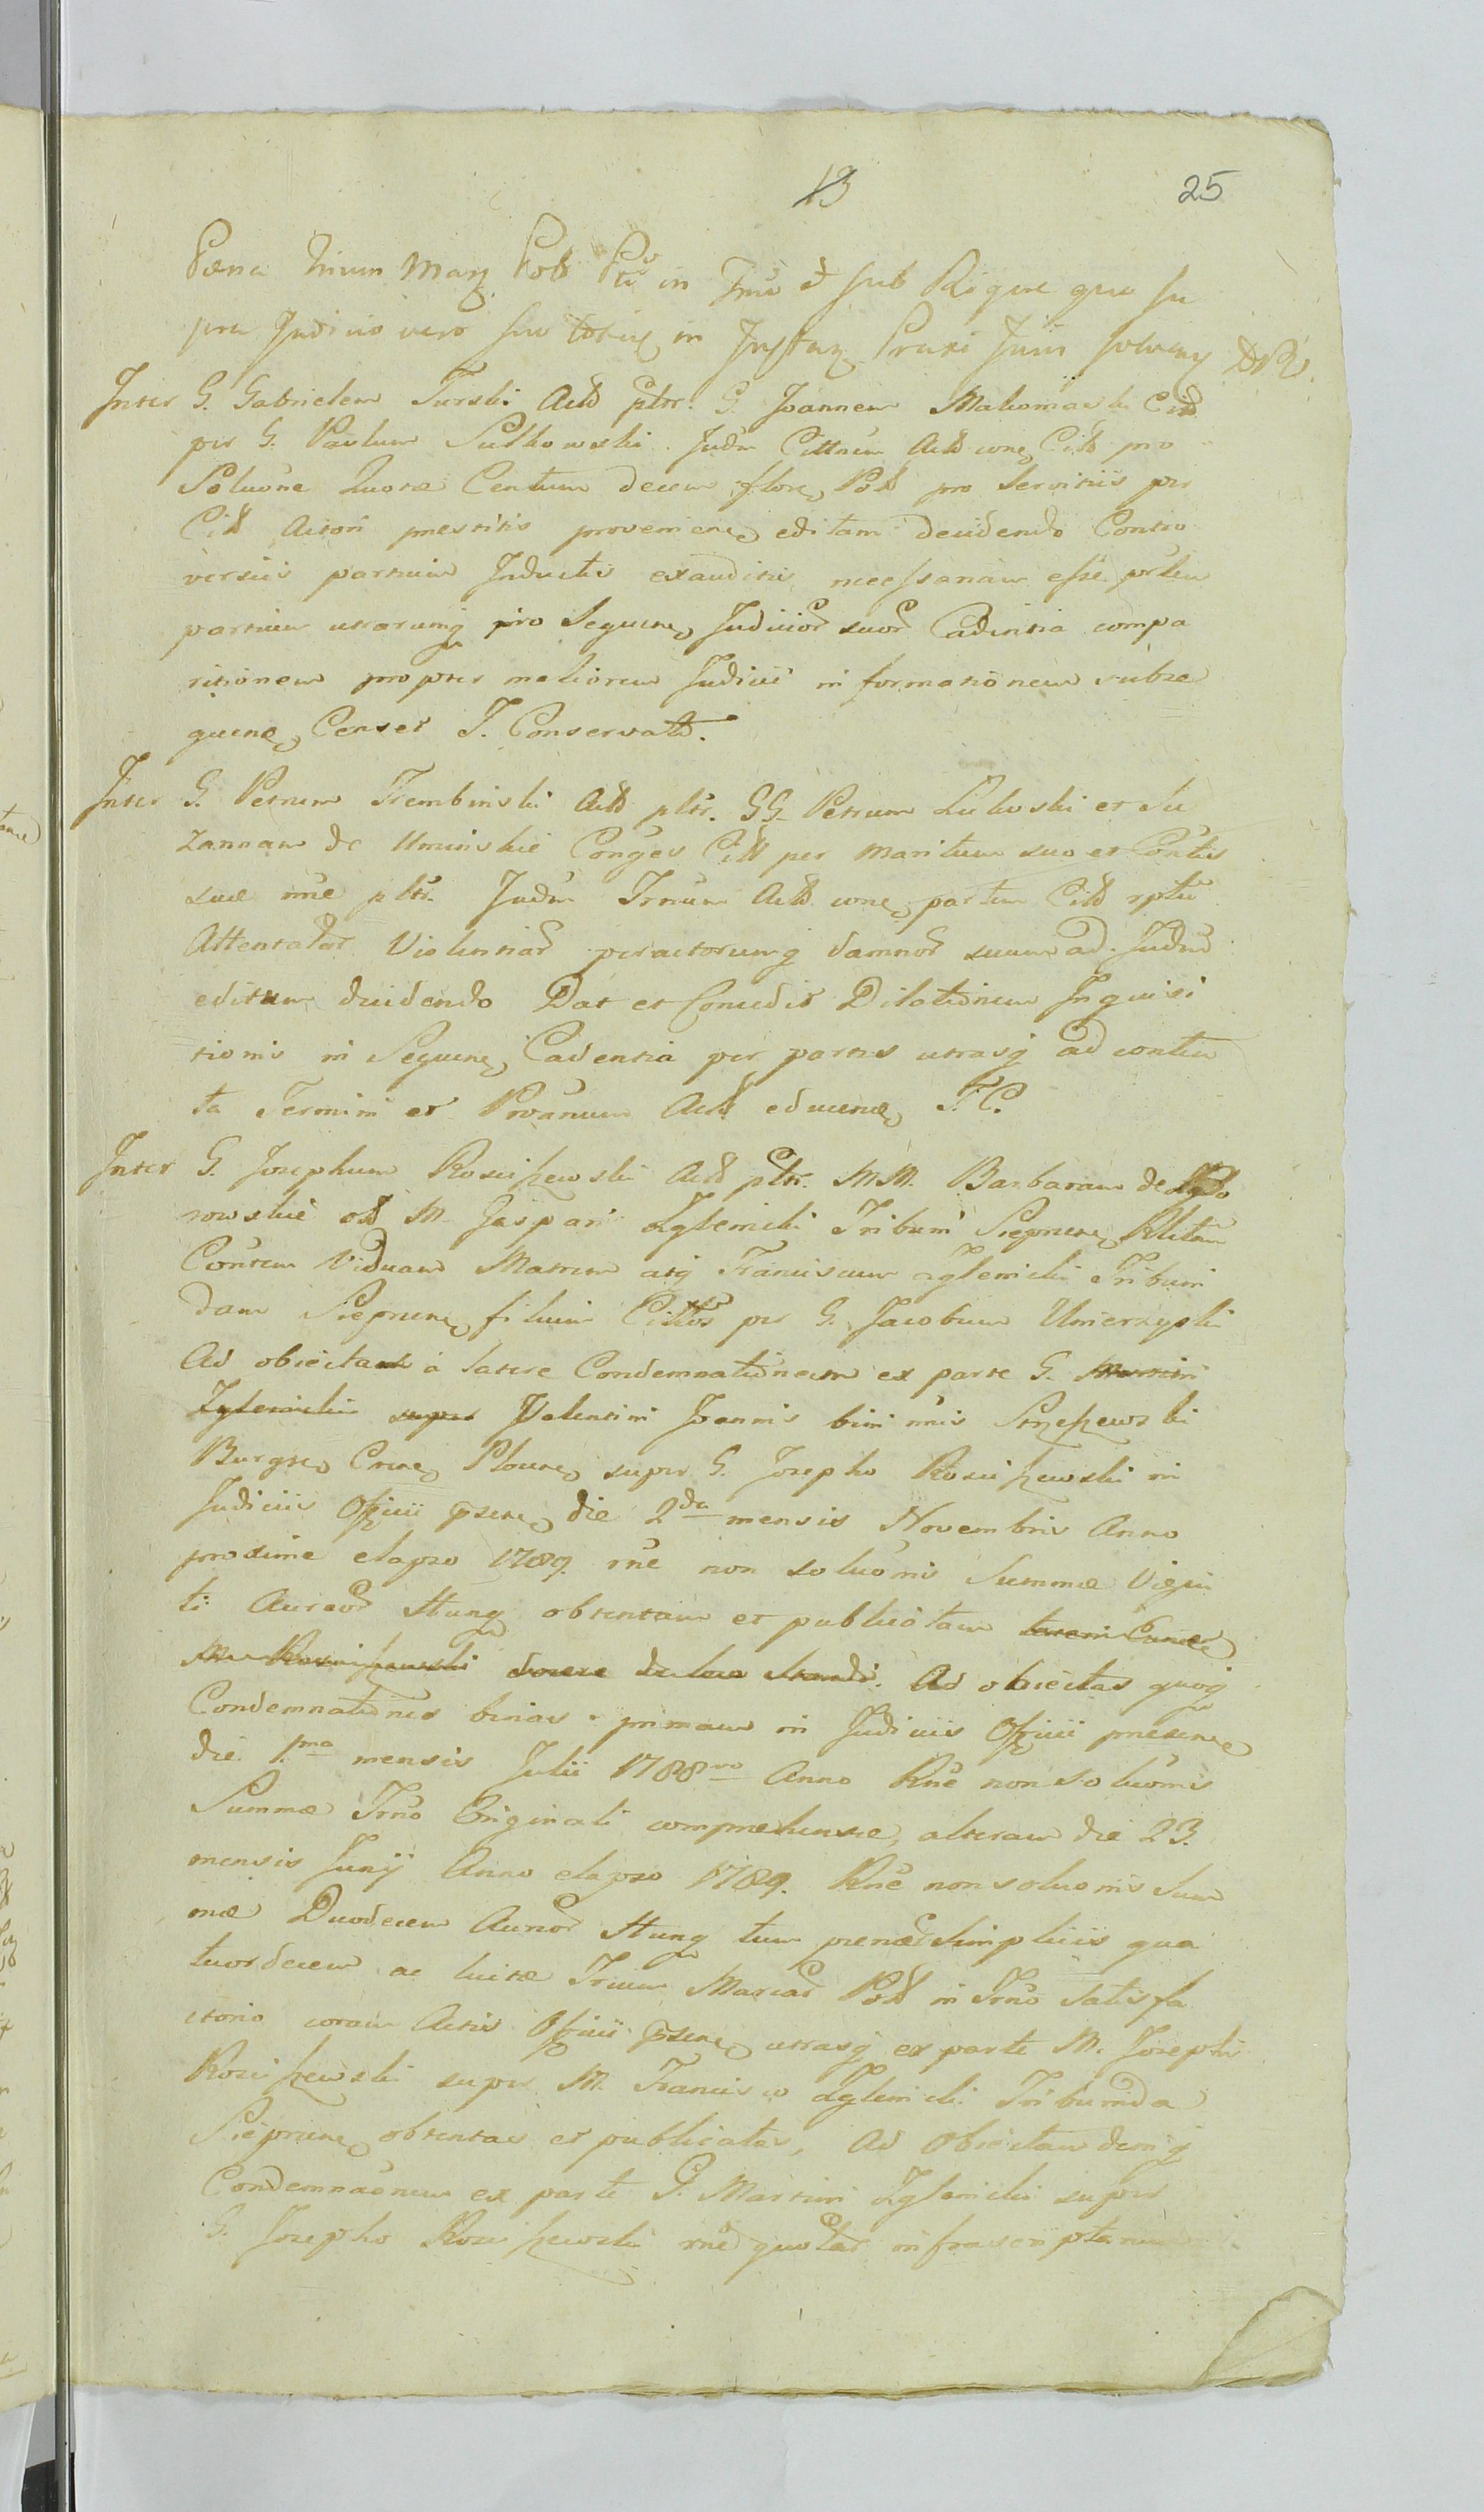 13 25
Pœna trium Marq in sub Rigore quo su
pra Judicio vero suo in Juris solven
Inter G. Gabrielem Turski Act pltr. G. Joannem Makomaski Citt
per G. Paulum Sulkowski Judm Cittnum Act conq Citt pro
Soluóne Quotæ Centum decem flore Poll pro Servitiis per
Citt Actori prestitis provenien editam decidendo Contro
versiis partium Inductis exauditis necessariam esse
partium utrarumq pro Sequen Judicior suor Cadentia compa
ritionem propter meliorem Judicii informationem subse
quen Censet T. Conservato.
Inter G. Petrum Trembinski Act pltr. GG. Petrum Lukoski et Su
zannam de Uminskie Conges Citt per Maritum suo et Contis
suæ nne pltr. Judm Trnum Act conq partem Citt rptu
Attentator Violentiar peractorumq damnor suum ad Judm
editum decidendo Dat et Concedit Dilationem Inquisi
tionis in Sequen Cadentia per partes utrasq ad conten
ta Termini et Act educen T. C.
Inter G. Josephum Rosciszewski Act pltr. MM. Barbaram de
rowskie olt M. Gaspari Zglenicki Tribuni Sieprcen Rlitam
Contem Viduam Matrem atq Franciscum Zglenicki Tribuni
dam Sieprcen filium Cittos per G. Jacobum Umierzyski
Ad obiectam a latere Condemnationem ex parte G. Martini
Zglenicki super Valentini Joannis bini nnis Strzeszewski
Burgre Cren Plocen super G. Josepho Rosciszewski in
Judiciis Officii psen die 2da mensis Novembris Anno
proxime elapso 1789. rne non soluónis Summæ Vigin
ti Aureor Hung obtentam et publicatam
Rosciszewski docere de loco standi. Ad obiectas quoq
Condemnationes binas primam in Judiciis Officii presen
die 1ma mensis Julii 1788vo Anno Rne non soluónis
Summæ Trno Originali comprehensæ, alteram die 23.
mensis Junij Anno elapso 1789. Rne non soluónis Sum
mæ Duodecem Auror Hung tum penar simplicis qua
tuordecem ac luitæ Trium Marcar Poll in Trno Satisfa
ctorio coram Actis Officii psen utrasq ex parte M. Josephi
Rosciszewski super M. Francisco Zglenicki Tribunida
Sieprcen obtentas et publicatas, Ad Obiectam deniq
Condemnaónem ex parte G. Martini Zglenicki super
G. Josepho Rosciszewski rne quotar infrascriptarum